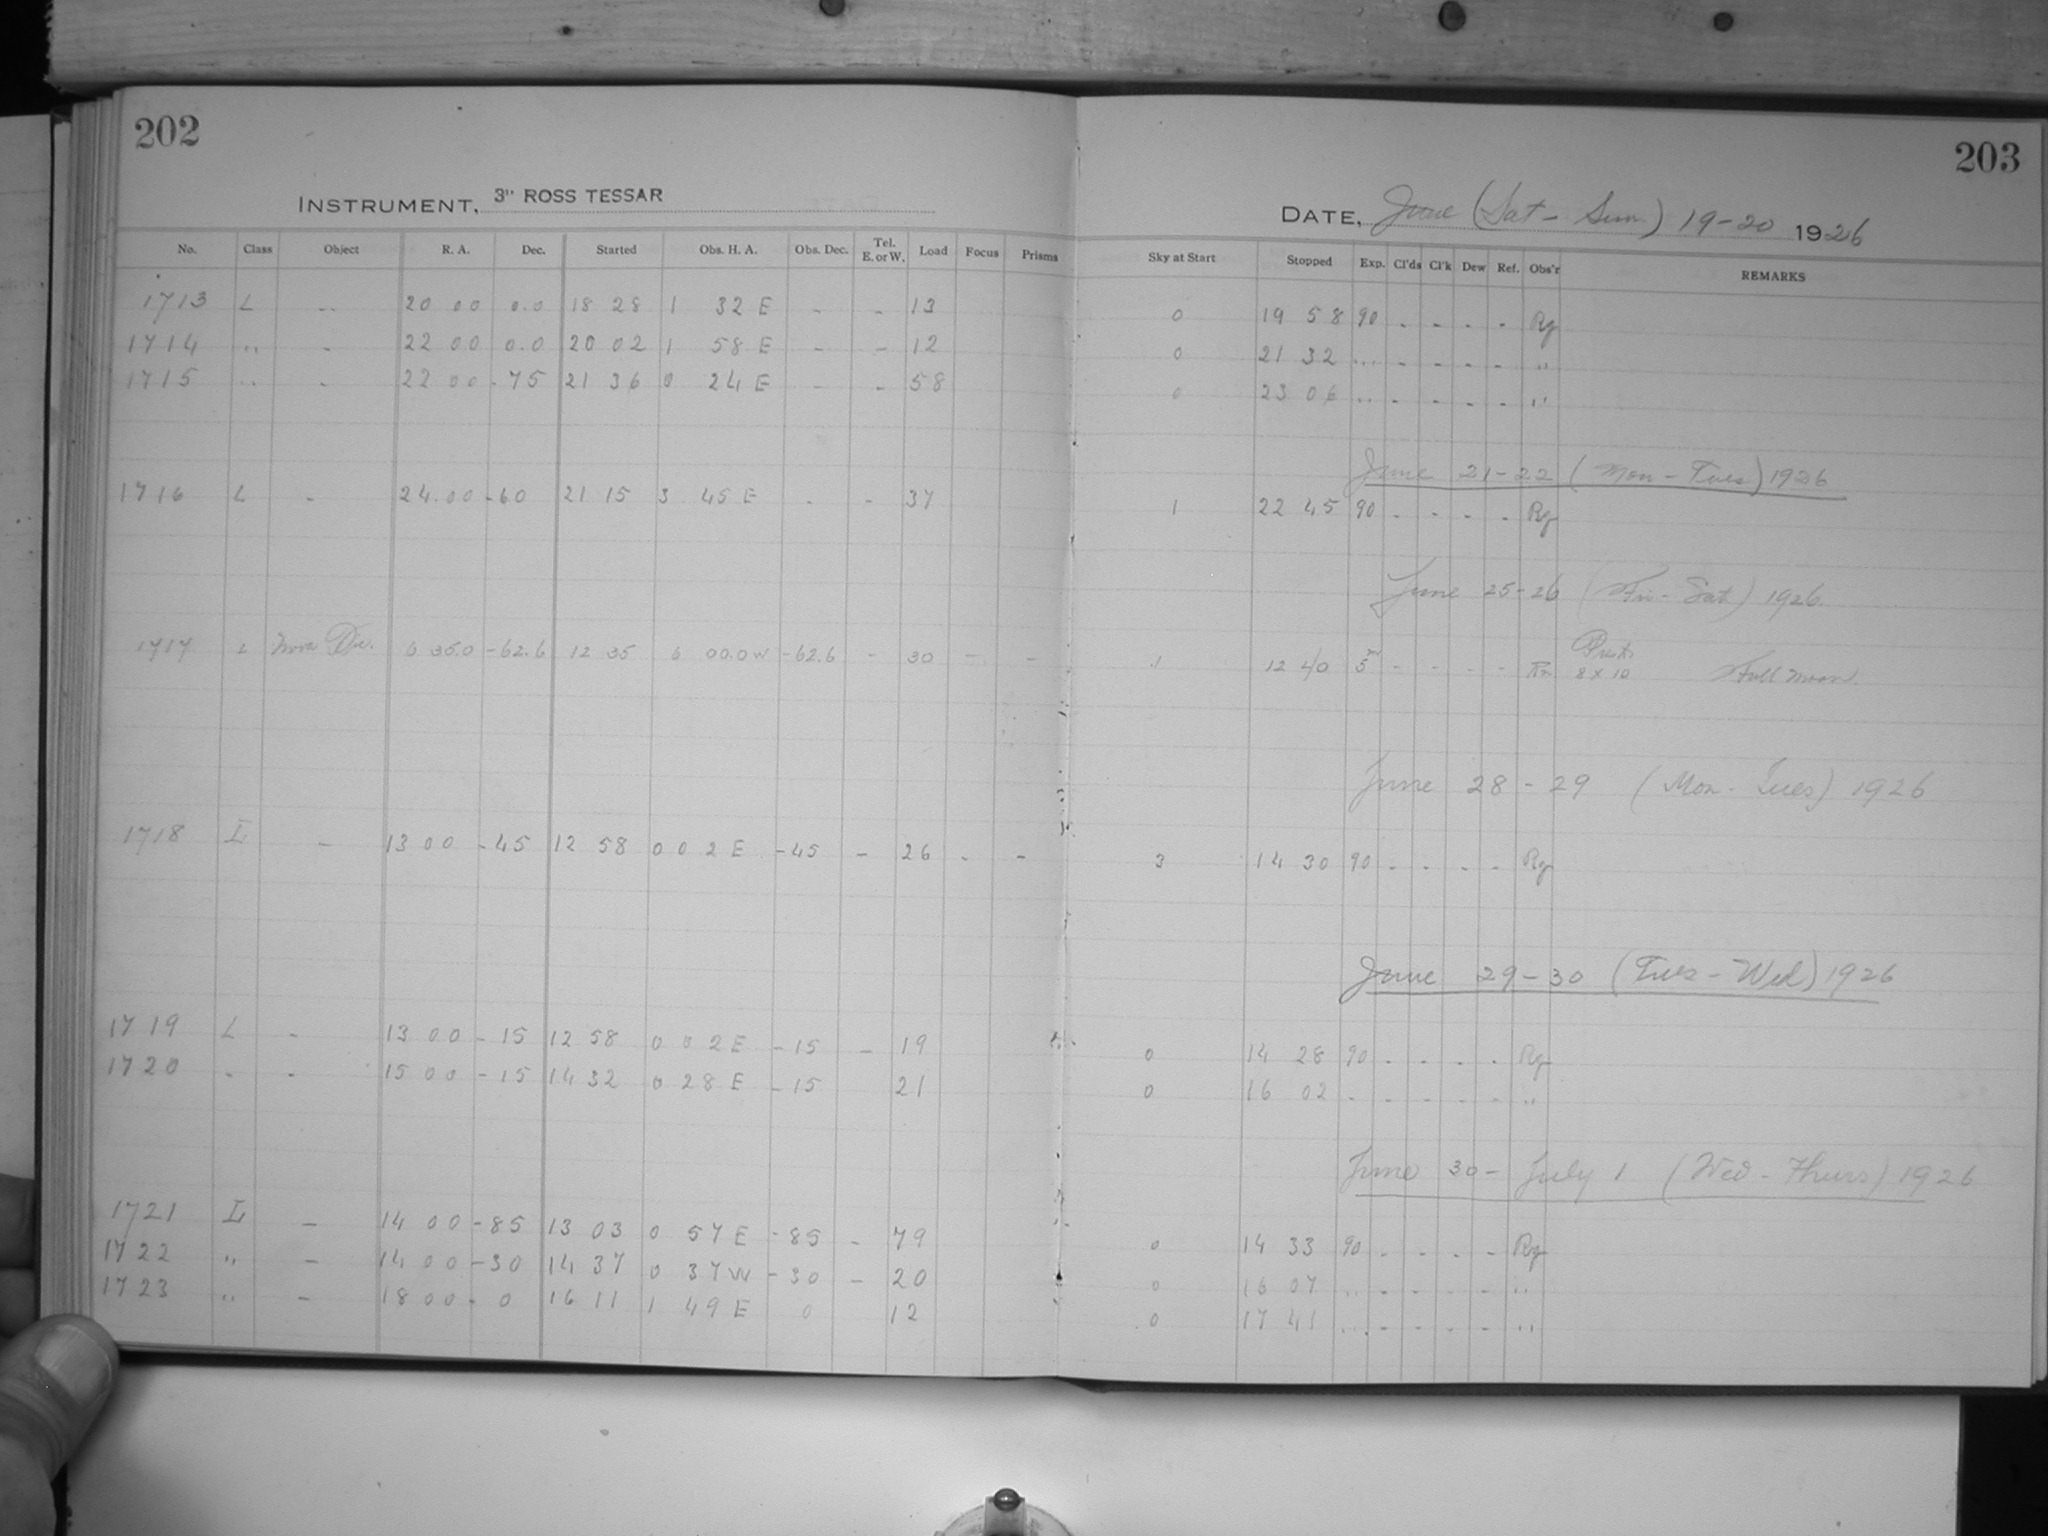 202
203
INSTRUMENT, 3" ROSS TESSAR
DATE, June (Sat - Sun) 19-20 1926
No. Class Object R. A. Dec. Started Obs. H. A. Obs. Dec. Tel. E. or W. Load Focus Prisms Sky at Start Stopped Exp. Cl'ds Cl'k Dew Ref. Obs'r REMARKS
1713 L - 20 00 0.0 18 28 1 32 E - - 13 0 19 58 90 - - - - Rg
1714 " - 22 00 0.0 20 02 1 58 E - - 12 0 21 32 " - - - - "
1715 " - 22 00 -75 21 36 0 24 E - - 58 0 23 06 " - - - - "
June 21-22 (Mon - Tues) 1926
1716 L - 24.00 -60 21 15 3 45 E - - 37 1 22 45 90 - - - - Rg
June 25-26 (Fri - Sat) 1926
1717 L Moon 6 35.0 -62.6 12 35 6 00.0 W -62.6 - 30 - - 1 12 40 5m - - - - 8 x 10 Full moon
June 28 - 29 (Mon - Tues) 1926
1718 L - 13 00 -45 12 58 0 02 E -45 - 26 - - 3 14 30 90 - - - - Rg
June 29-30 (Tues - Wed) 1926
1719 L - 13 00 -15 12 58 0 02 E -15 - 19 0 14 28 90 - - - - Rg
1720 - - 15 00 -15 14 32 0 28 E -15 21 0 16 02 - - - - - "
June 30 - July 1 (Wed - Thurs) 1926
1721 L - 14 00 -85 13 03 0 57 E -85 - 79 0 14 33 90 - - - - Rg
1722 " - 14 00 -30 14 37 0 37 W -30 - 20 0 16 07 " - - - - "
1723 " - 18 00 - 0 16 11 1 49 E 0 12 0 17 41 " - - - - "